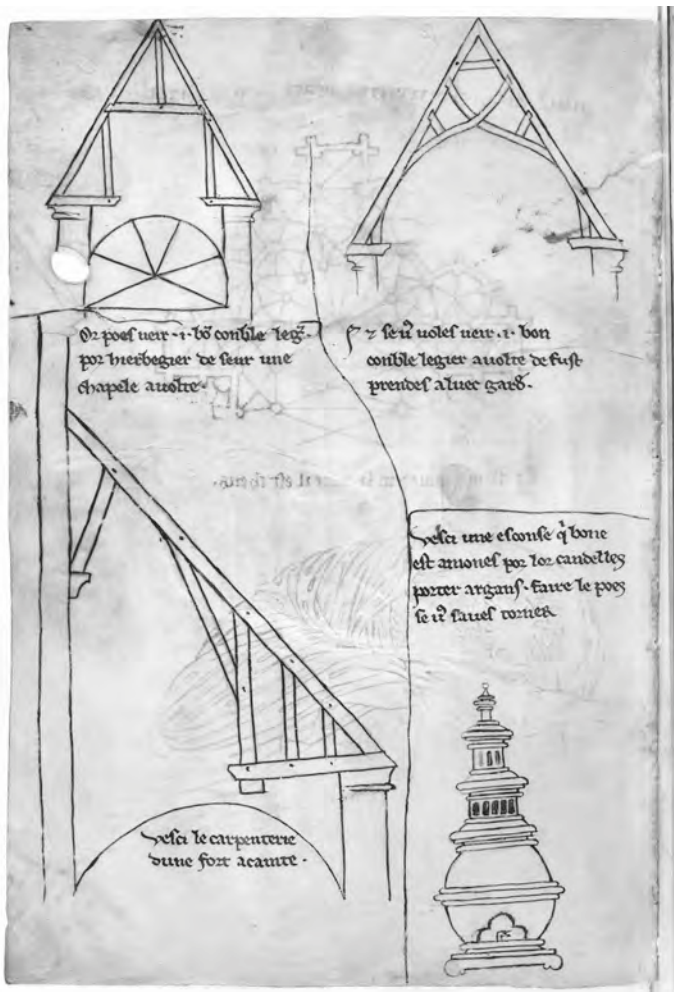 Or poes veir · i · bō conble leg̃.
por hierbegier de seur une
chapele avolte ·
⁊ se ỽ voles veir · i · bon
conble legier avolte de fust
prendes alvec gard̃ ·
Vesci une esconse q̃ bone
est amones por lor candelles
porter argans · faire le poes
se ỽ saves torner
Vesci le carpenterie
dune fort acainte ·